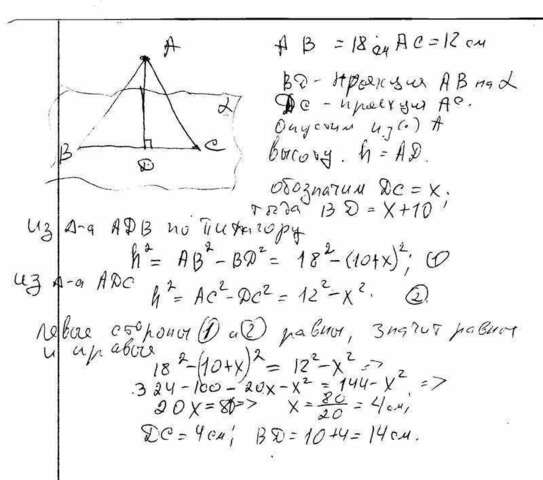 A
α
B
D
C
AB = 18 см AC = 12 см
BD - проекция AB на α
DC - проекция AC.
опустим из (·) A
высоту. h = AD.
обозначим DC = x;
тогда BD = x+10
из Δ-а ADB по Пифагору
h² = AB² - BD² = 18² - (10+x)²; ①
из Δ-а ADC
h² = AC² - DC² = 12² - x². ②
левые стороны ① и ② равны, значит равны
и правые
18² - (10+x)² = 12² - x² =>
324 - 100 - 20x - x² = 144 - x² =>
20x = 80 => x = 80/20 = 4 см;
DC = 4 см; BD = 10+4 = 14 см.